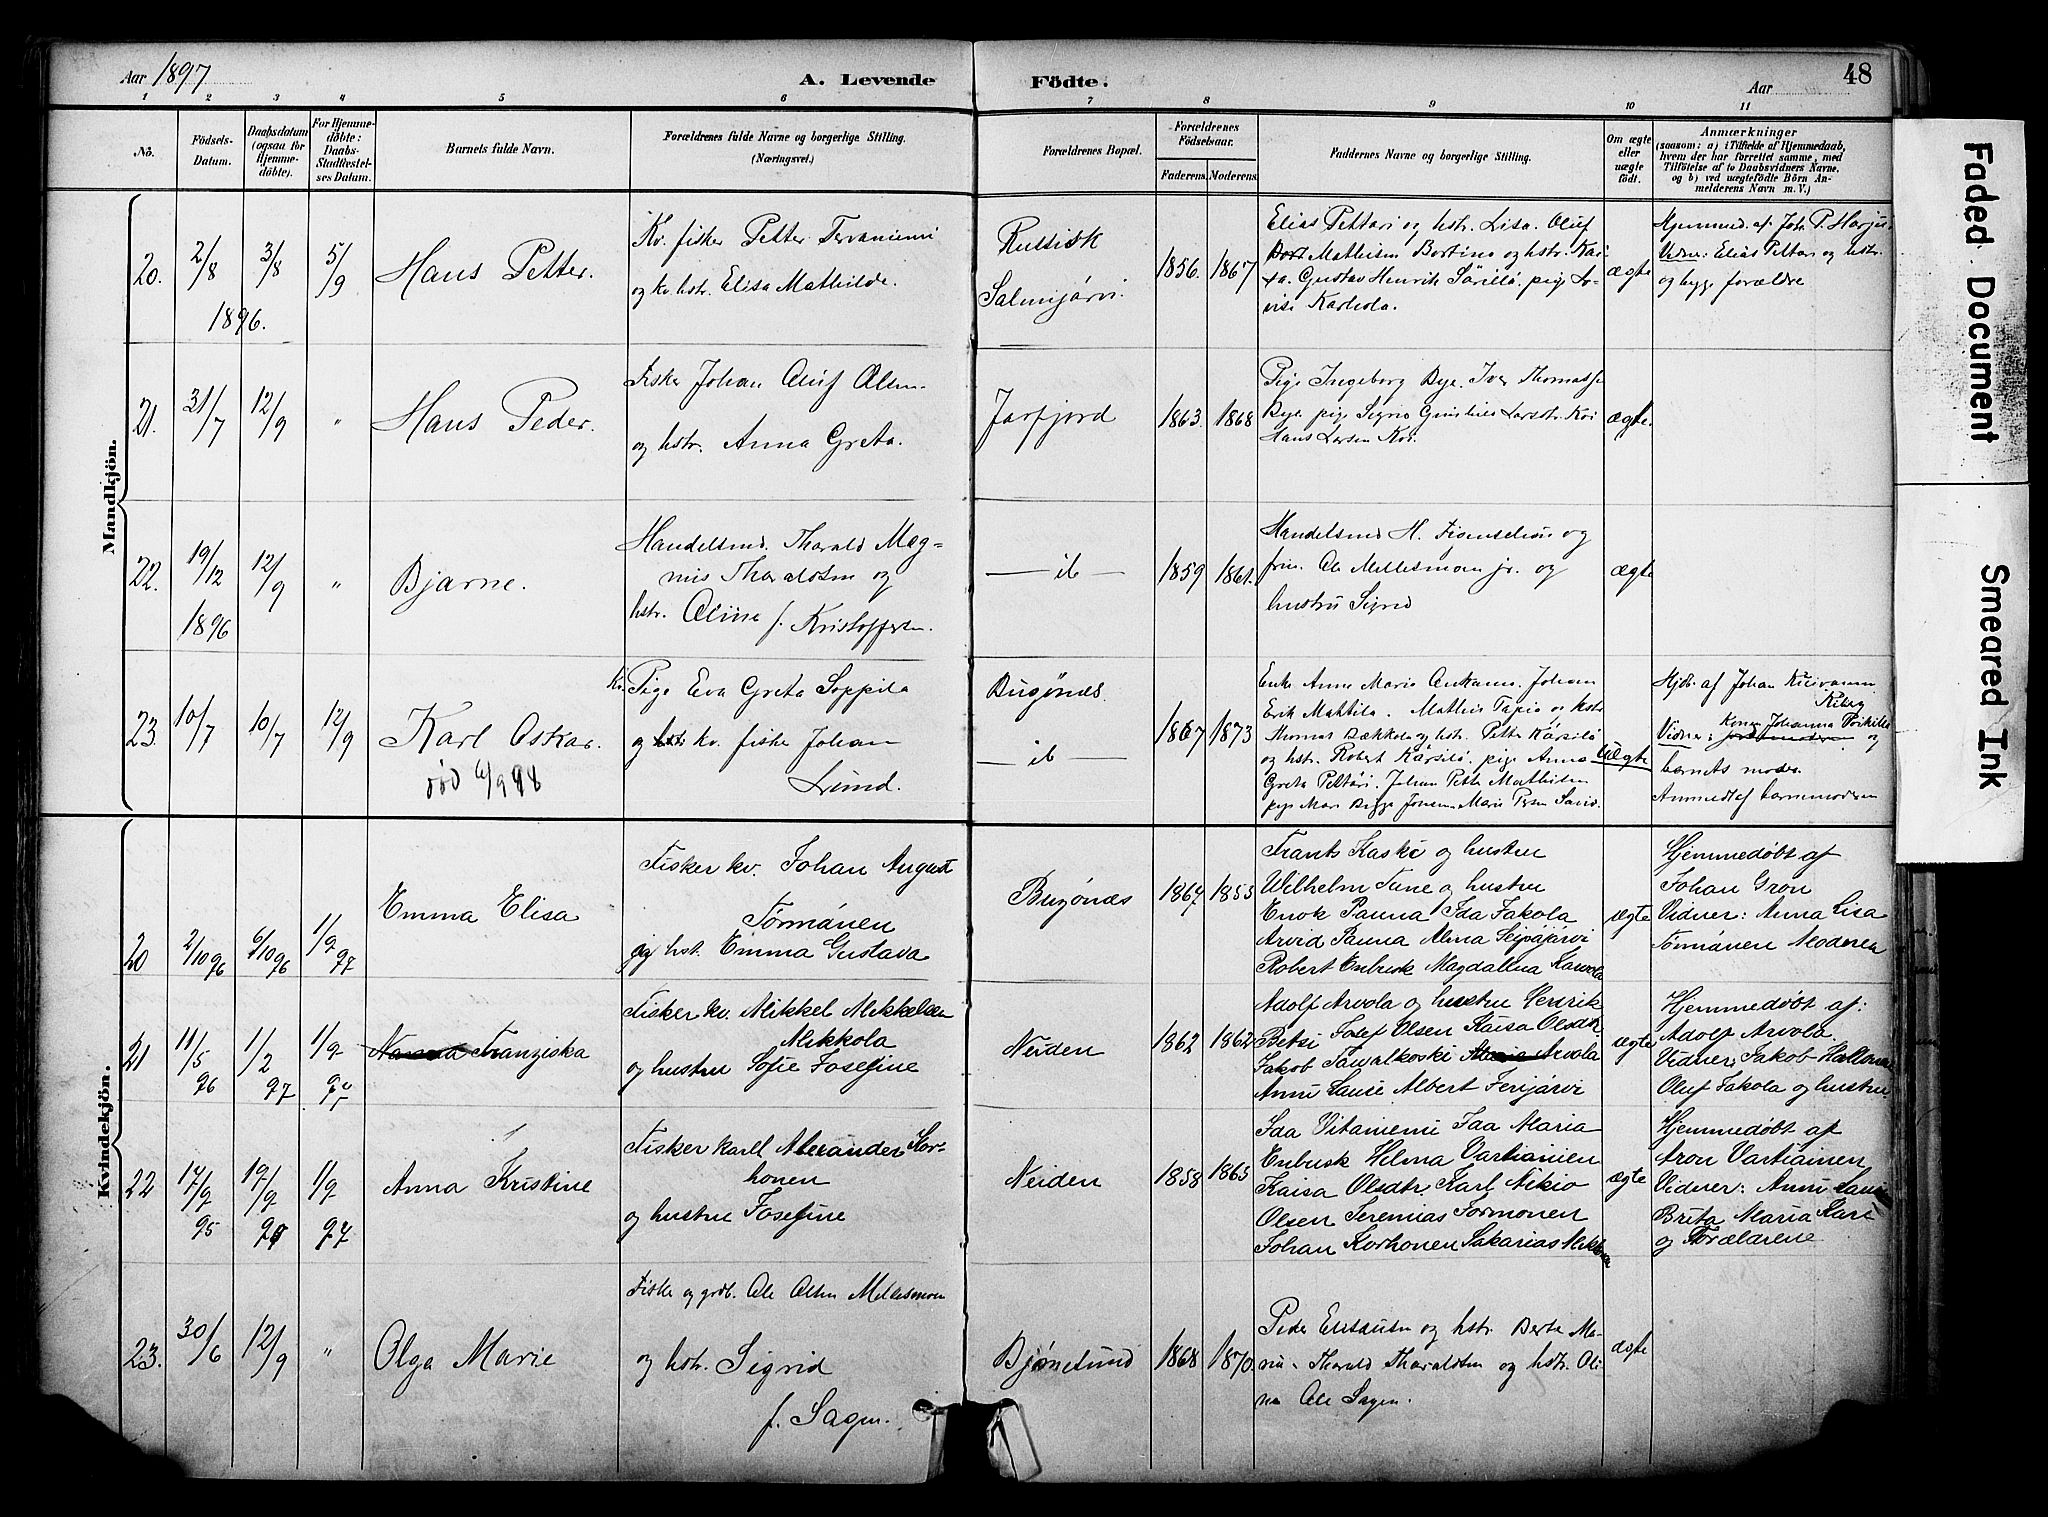 Aar 1897
A. Levende
Födte.
Aar
48
1 2 3 4 5 6 7 8 9 10 11
No.
Födsels-
Datum.
Daabsdatum
(ogsaa for
Hjemme-
döbte).
For Hjemme-
döbte:
Daabs-
Stadfæstel-
ses Datum.
Barnets fulde Navn.
Forældrenes fulde Navne og borgerlige Stilling.
(Næringsvei.)
Forældrenes Bopæl.
Forældrenes
Födselsaar.
Faderens.
Moderens.
Faddernes Navne og borgerlige Stilling.
Om ægte
eller
uægte
födt.
Anmærkninger
(saasom: a) i Tilfælde af Hjemmedaab,
hvem der har forrettet samme, med
Tilföielse af to Daabsvidners Navne,
og b) ved uægtefödte Börn An-
melderens Navn m. V.)
Mandkjön.
20.
2/8
1896.
3/8
5/9
Hans Petter.
Kv. fisker Petter Tervaniemi
og kv. hstr. Elisa Mathilde.
Russisk
Salmijärvi.
1856.
1867
Elias Pettari og hstr. Lisa. Oluf
Mathisen Bortino og hstr. Kai-
sa. Gustav Henrik Särilö. pige Lo-
visi Karhola.
ægte
Hjemmed. af. Joh. P. Harju
Vidner: Elias Pettari og hstr.
og begge forældre
21.
31/7
12/9
"
Hans Peder.
Fisker Johan Oluf Olsen
og hstr. Anna Greta.
Jarfjord
1863.
1868
Pige Ingeborg Bye. Iver Thomass.
Bye pige Sigrid Larsdtr. Kvi
Hans Larsen Kvi.
ægte.
22.
19/12
1896
12/9
"
Bjarne.
Handelsmd. Tharald Mag-
nus Tharaldsen og
hstr. Oline f. Kristoffersen.
— ib —
1859
1861.
Handelsmd H. og
frue. Ole Mellesmoen jr. og
hustru Sigrid
ægte
23.
10/7
10/7
12/9
Karl Oskar.
död 6/9 98
Kv. Pige Eva Greta Soppila
og kv. fisker Johan
Lund.
Bugönæs
— ib —
1867
1873
Enke Anna Maria Johan
Erik Mattila. Mathis Tapio og hstr
Thomas Bækkola og hstr. Petter Kärsilö
og hstr. Robert Kärsilö. pige Anna
Greta Pettäri. Johan Petter Mathisen
uægte
Hjdbt. af Johan Kuivanen
Kiberg
Vidner: Kone Johanna og
barnets moder.
Anmeldt af barnemoderen
Kvindekjön.
20
2/10 96
6/10 96
1/2 97
Emma Elisa
Fisker kv. Johan August
Törmänen
og hst. Emma Gustava
Bugönæs
1867
1853
Frants Kaski og hustru
Wilhelm Tune og hustru
Enok Panna Ida Jakola
Arvid Panna Alma Seipäjärvi
Robert Enbusk Magdalina Karvola
ægte
Hjemmedöbt af
Johan Gron
Vidner: Anna Lisa
Törmänen Moderen
21
11/5 96
1/2 97
1/2 97
Franziska
Fisker kv. Mikkel Mikkelsen
Mikkola
og hustru Sofie Josefine
Neiden
1862
1862
Adolf Arvola og hustru Henrik
Betsi Josef Olsen Kaisa Olsdtr
Jakob Tawalkoski Maria Arvola
Anni Lauri Albert Ferijärvi
ægte
Hjemmedöbt af:
Adolf Arvola.
Vidner: Jakob Hallonen
Oluf Jakola og hustru
22
17/2 95
1/2 97
Anna Kristine
Fisker Karll Alexander Kor-
honen
og hustru Josefine
Neiden
1858
1865
Ida Vitaniemi Ida Maria
Enbusk Helma Vartiainen
Kaisa Olsdtr. Karl Nikio
Olsen Jeremias Tormonen
Johan Korhonen Sakarias
ægte
Hjemmedöbt af
Aron Vartiainen
Vidner: Anni Lauri
Brita Maria Kari
og Forældrene
23.
30/6
12/9
"
Olga Marie
Fisker og grdb. Ole Olsen Mellesmoen
og hstr. Sigrid
f. Sagen.
Björnesund
1868
1870.
Peder Eliassen og hstr. Berte Ma-
rie. Tharald Tharaldsen og hstr. Oli-
ne Ole Sagen.
Faded Document
Smeared Ink